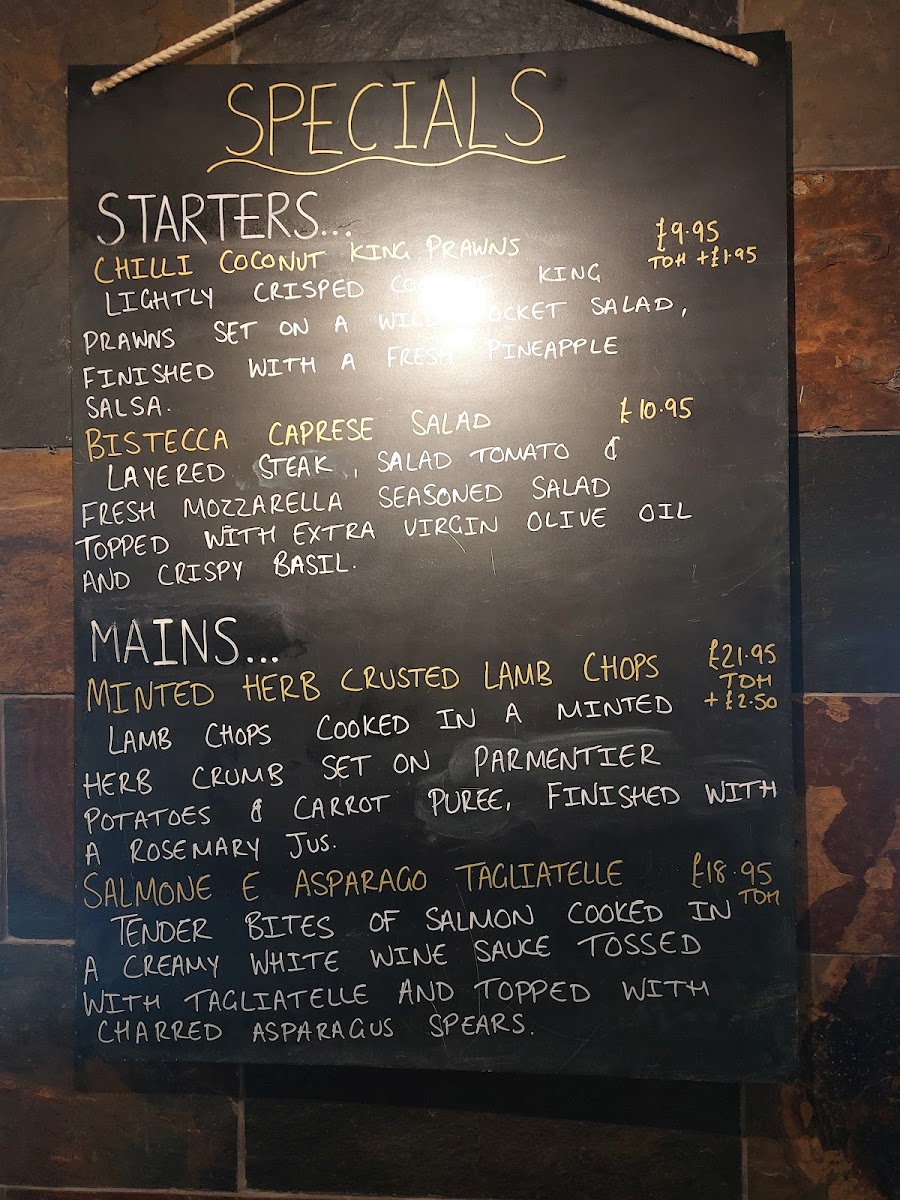 SPECIALS
STARTERS...
CHILLI COCONUT KING PRAWNS £9.95
TOH +£1.95
LIGHTLY CRISPED KING
PRAWNS SET ON A WILD ROCKET SALAD,
FINISHED WITH A FRESH PINEAPPLE
SALSA.
BISTECCA CAPRESE SALAD £10.95
LAYERED STEAK, SALAD TOMATO &
FRESH MOZZARELLA SEASONED SALAD
TOPPED WITH EXTRA VIRGIN OLIVE OIL
AND CRISPY BASIL.
MAINS...
MINTED HERB CRUSTED LAMB CHOPS £21.95
TOH
+£2.50
LAMB CHOPS COOKED IN A MINTED
HERB CRUMB SET ON PARMENTIER
POTATOES & CARROT PUREE, FINISHED WITH
A ROSEMARY JUS.
SALMONE E ASPARAGO TAGLIATELLE £18.95
TOH
TENDER BITES OF SALMON COOKED IN
A CREAMY WHITE WINE SAUCE TOSSED
WITH TAGLIATELLE AND TOPPED WITH
CHARRED ASPARAGUS SPEARS.